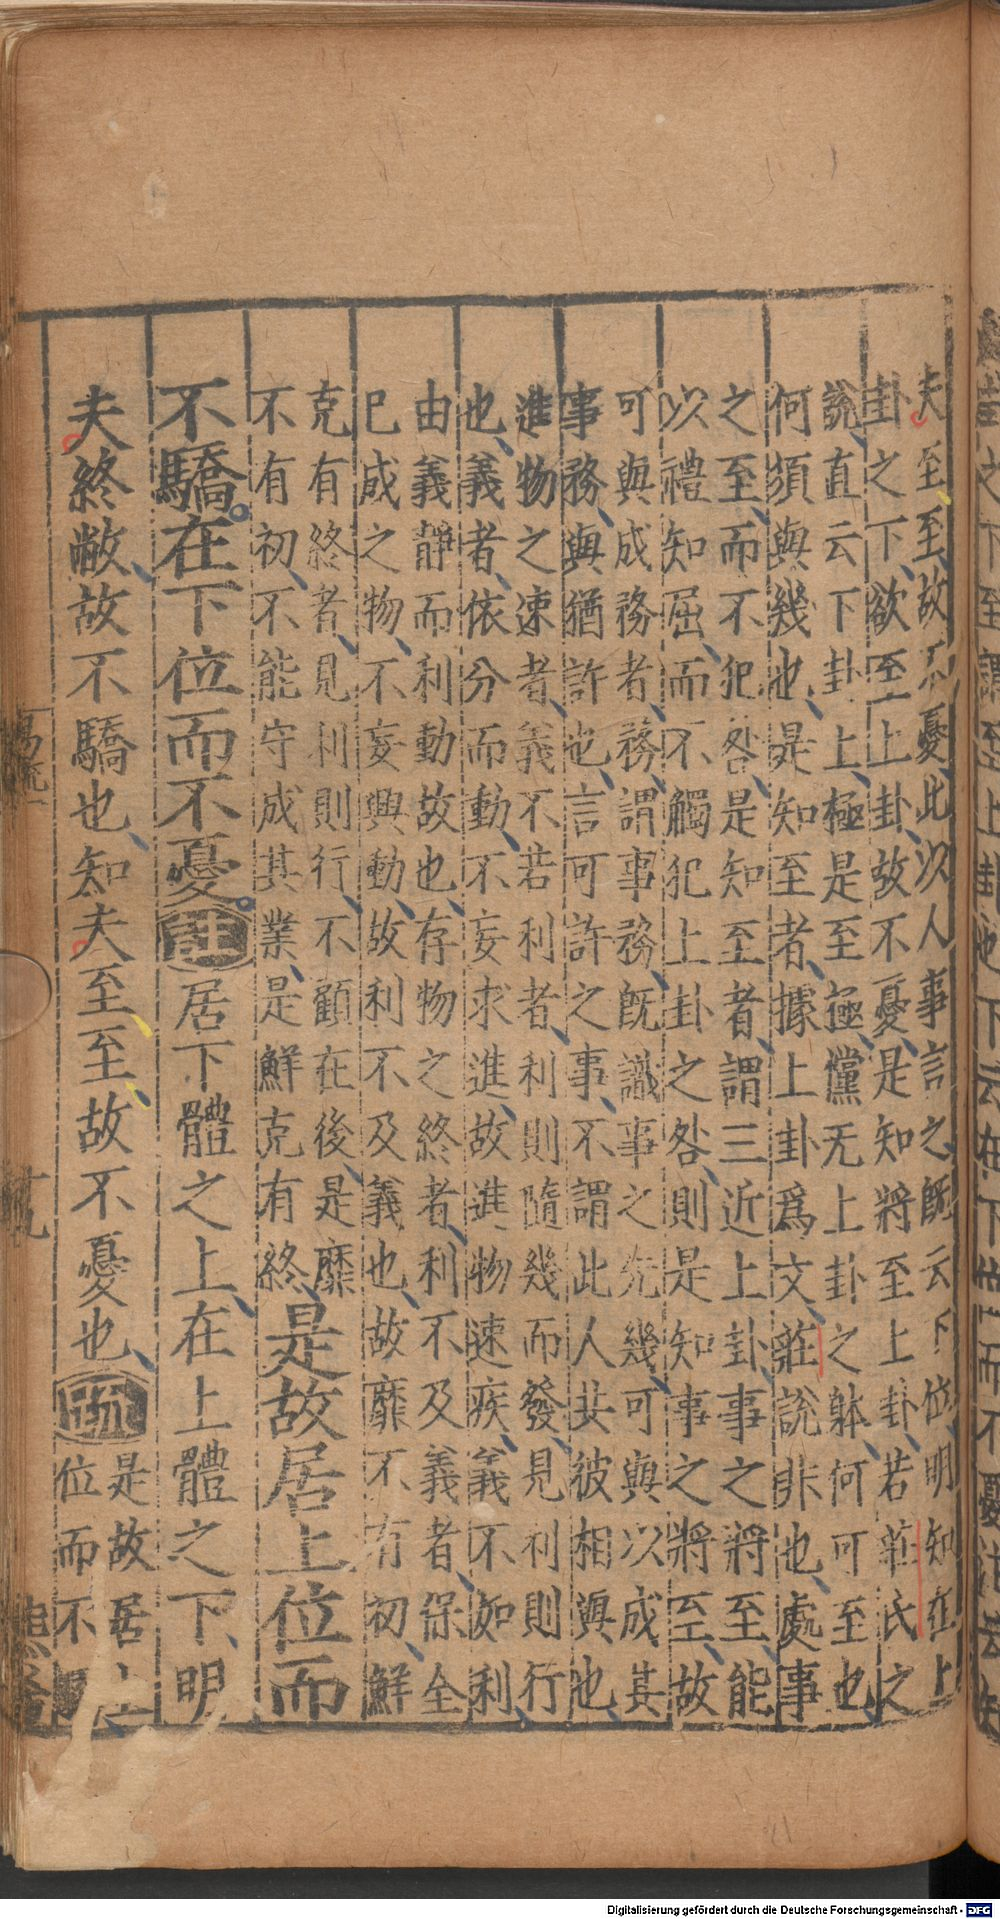 夫至至故不憂此以人事言之旣云下位明知在上
卦之下欲至上卦故不憂是知將至上卦若莊氏之
說直云下卦上極是至極儻无上卦之躰何可至也
何須與幾也是知至者據上卦爲文莊說非也處事
之至而不犯咎是知至者謂三近上卦事之將至能
以禮知屈而不觸犯上卦之咎則是知事之將至故
可與成務者務謂事務旣識事之先幾可與以成其
事務與猶許也言可許之事不謂此人共彼相與也
進物之速者義不若利者利則隨幾而發見利則行
也義者依分而動不妄求進故進物速疾義不如利
由義靜而利動故也存物之終者利不及義者保全
已成之物不妄興動故利不及義也故靡不有初鮮
克有終者見利則行不顧在後是靡
不有初不能守成其業是鮮克有終是故居上位而
不驕在下位而不憂注居下體之上在上體之下明
夫終敝故不驕也知夫至至故不憂也疏是故居上
位而不
Digitalisierung gefördert durch die Deutsche Forschungsgemeinschaft - DFG